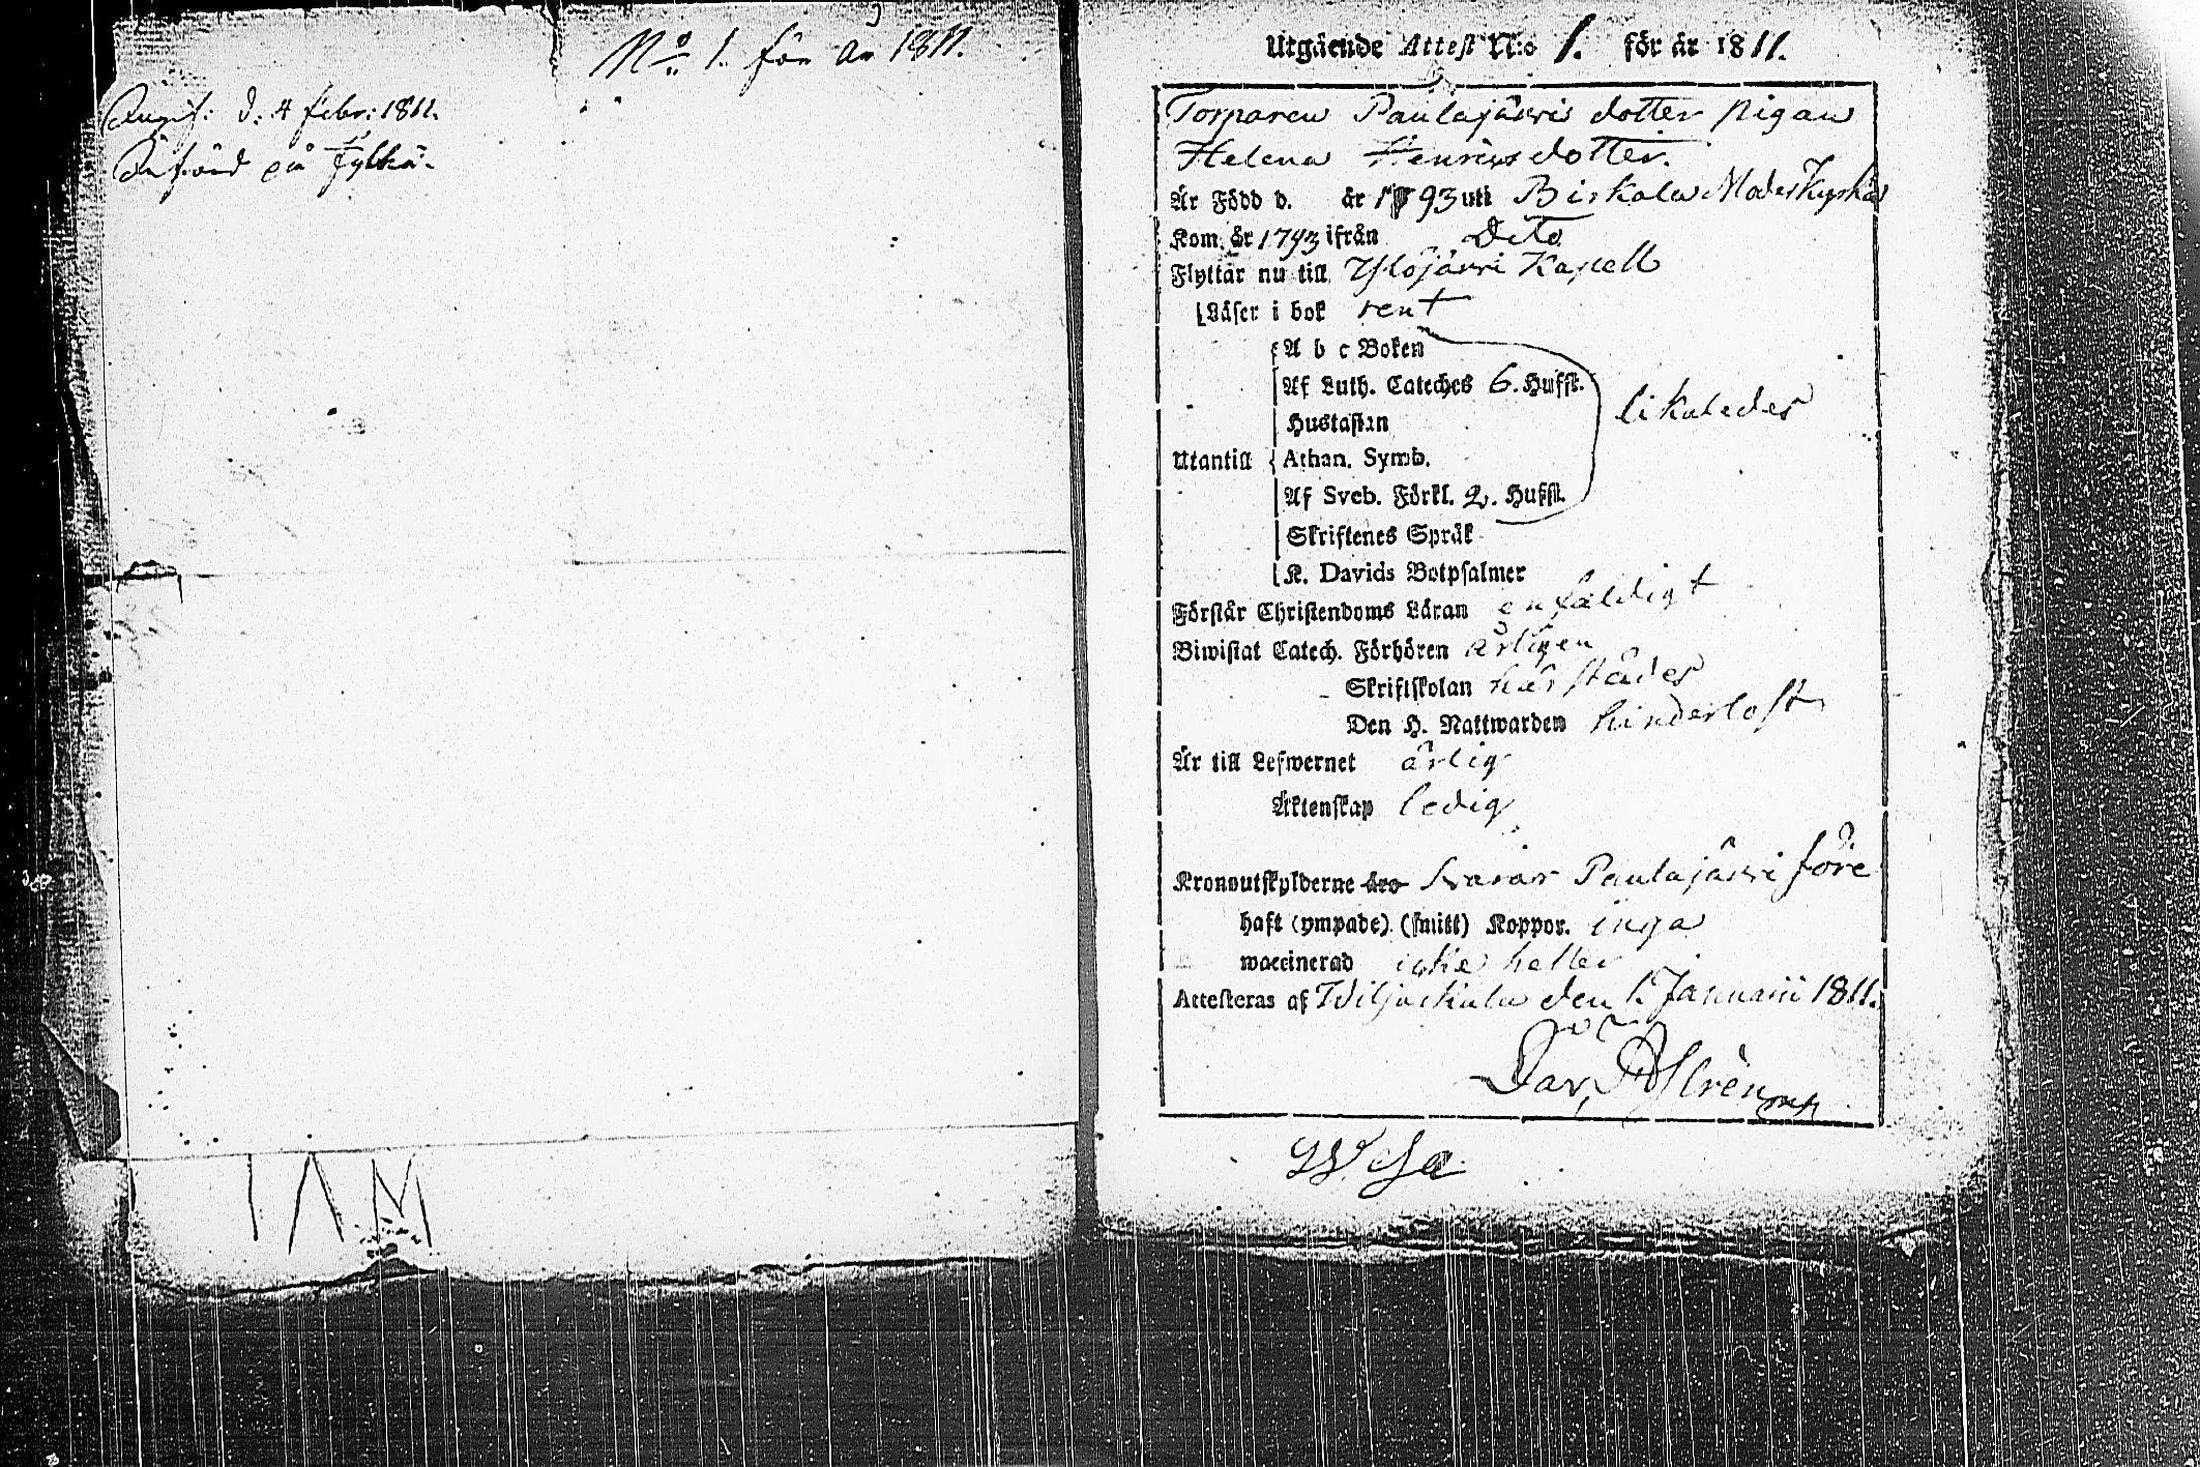 No 1. för År 1811.
d: 4 febr: 1811.
på Jylhä.
IAM
Utgående Attest N:o 1. för år 1811.
Torparen Paulajärwis dotter pigan
Helena Henricsdotter.
Är Född d. år 1793 uti Birkala Moderkyrka
Kom. år 1793 ifrån Dito
Flyttar nu till Ylöjärwi Kapell
Läser i bok rent
A b c Boken
Af Luth. Cateches 6. Hufst.
likaledes
Hustaflan
Utantill Athan. Symb.
Af Sveb. Förkl. 2. Hufst.
Skriftenes Språk
K. Davids Botpsalmer
Förstår Christendoms Läran enfaldigt
Biwistat Catech. Förhören årligen
Skriftskolan härstädes
Den H. Nattwarden hinderlöst
Är till Lefwernet ärlig
Äktenskap ledig
Kronoutskylderne äro swarar Paulajärwi före
haft (ympade) (smitt) Koppor. inga
waccinerad icke heller
Attesteras af Wiljackala den 1. Januarii 1811.